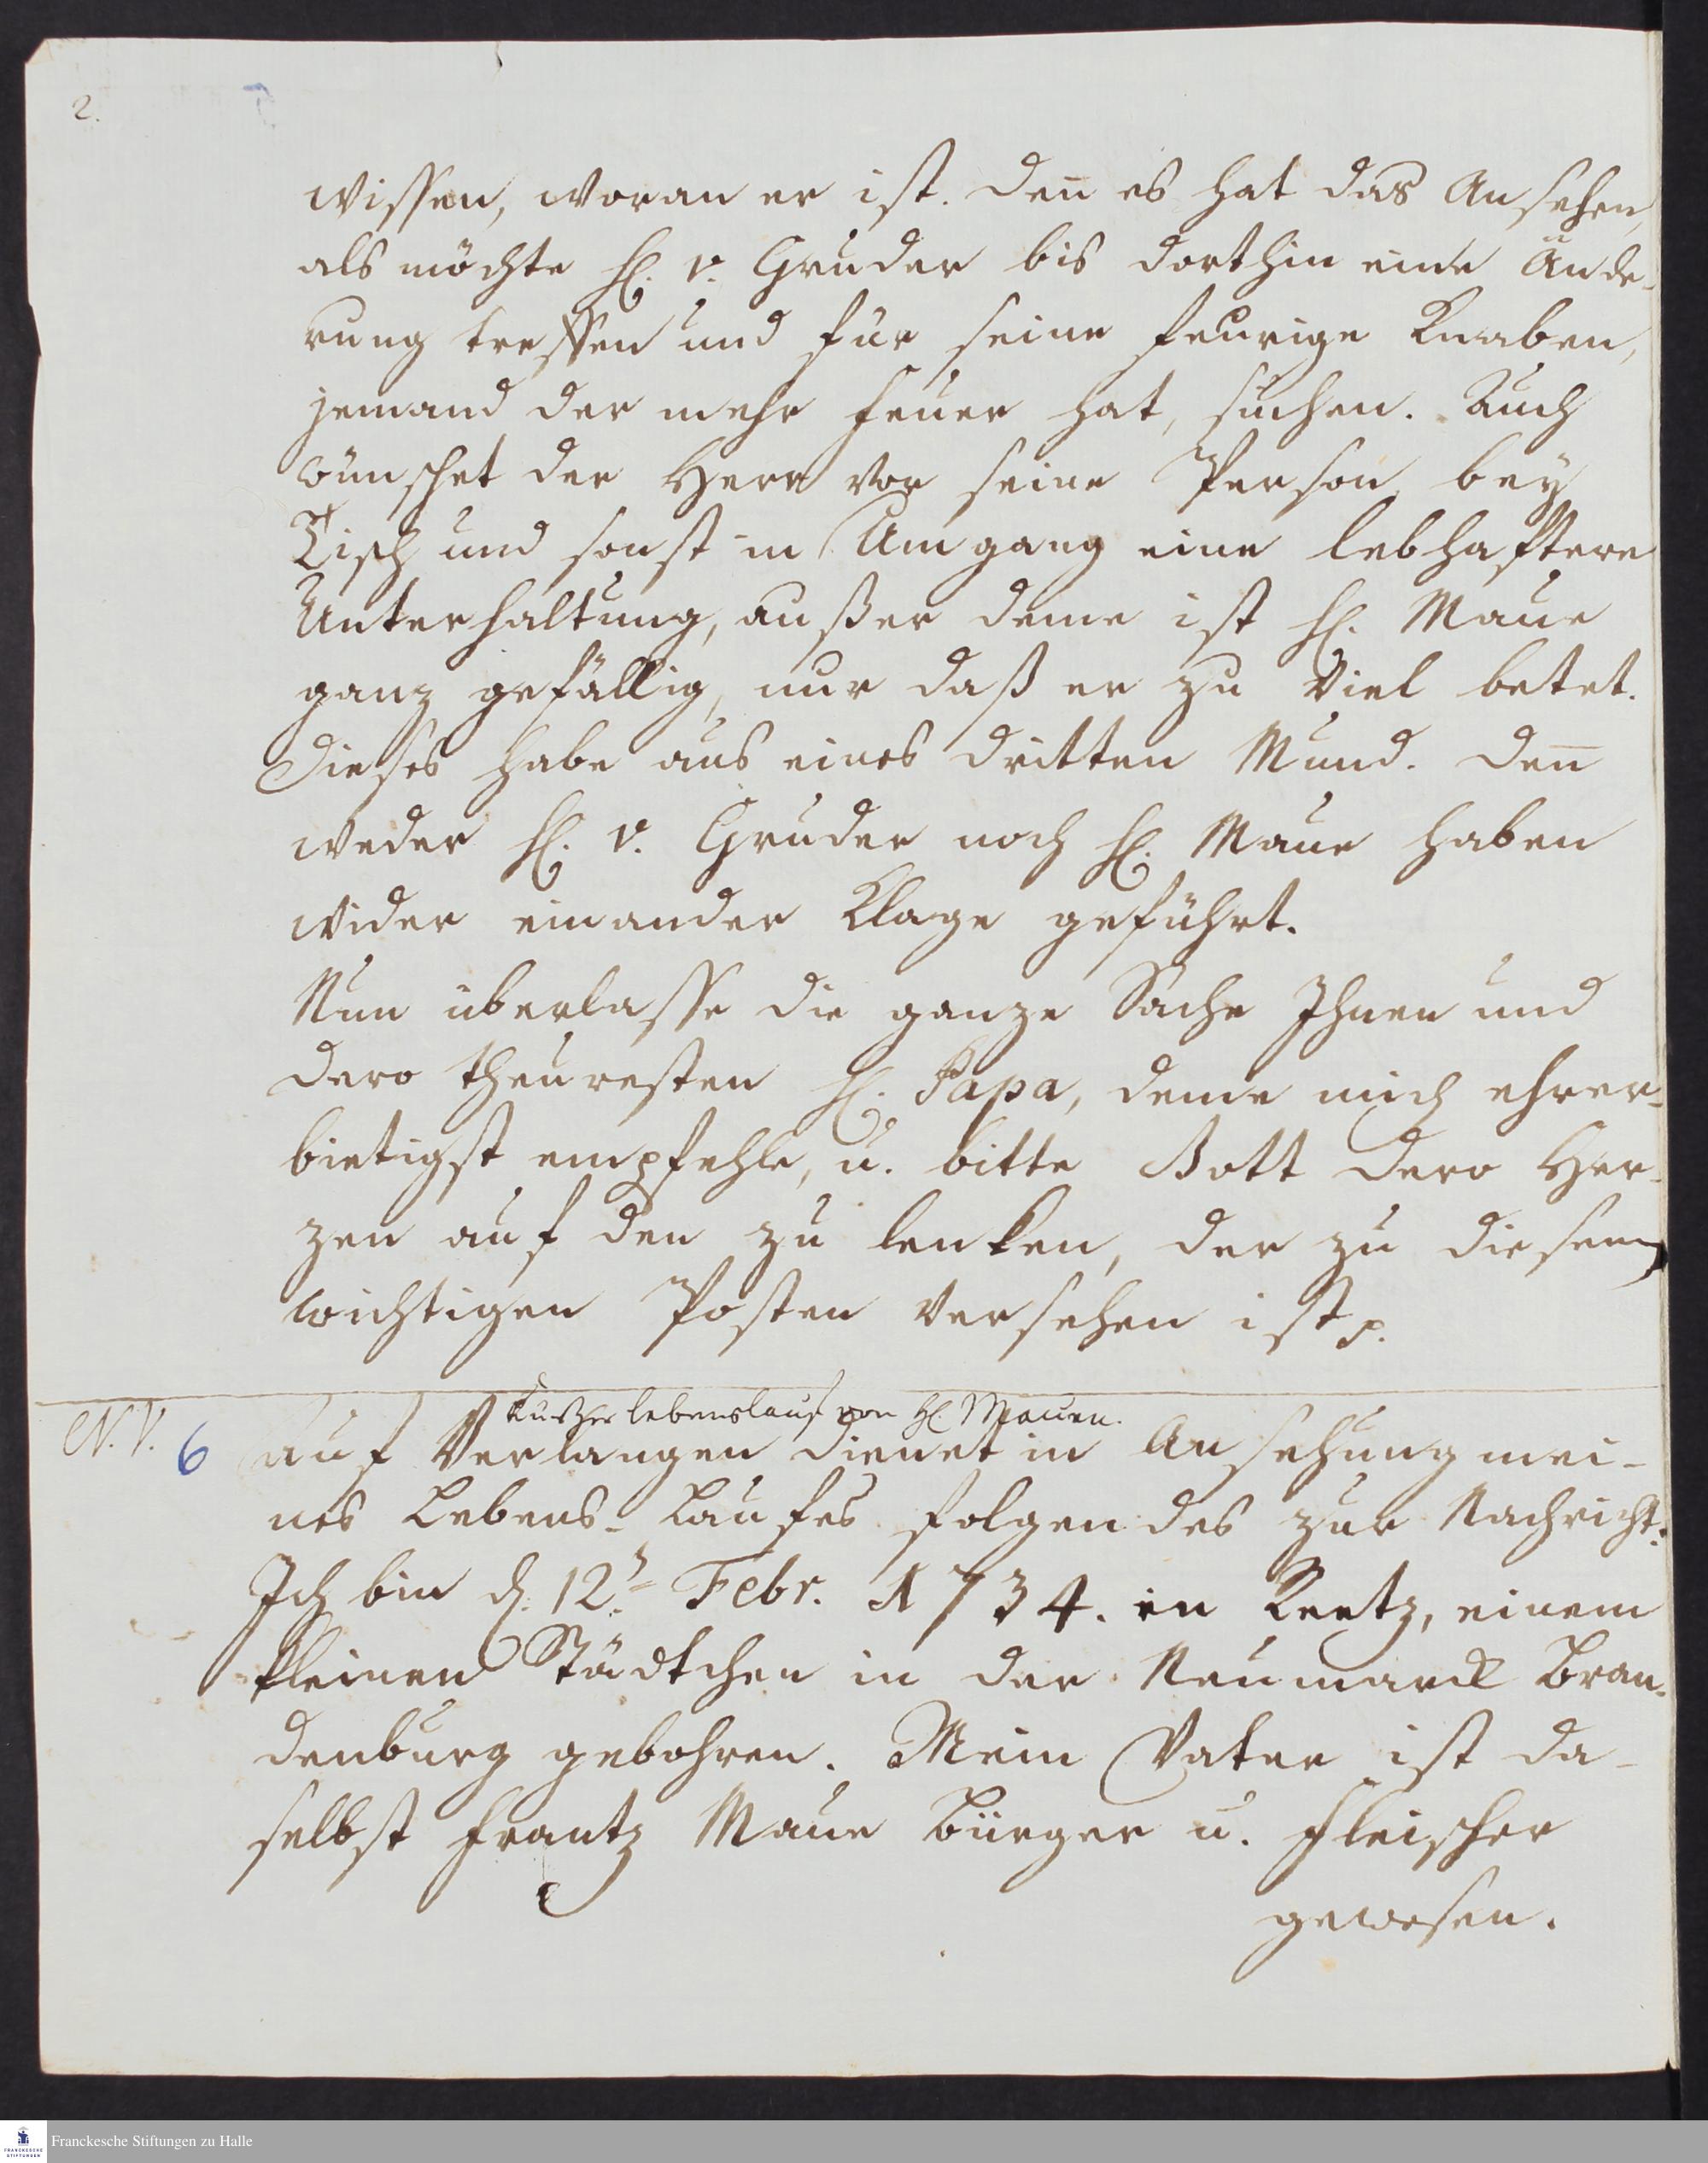 2.
wissen, woran er ist. Den̄ es hat das Ansehen,
als möchte H. v. Gruder bis dorthin eine Ände-
rung treffen und für seine feurige Knaben,
jemand der mehr Feuer hat, suchen. Auch
wünschet der Herr vor seine Person bey
Tisch und sonst in Umgang eine lebhaftere
Unterhaltung, außer deme ist H. Maue
ganz gefällig, nur daß er zu viel betet.
Dieses habe aus eines dritten Mund. Den̄
weder H. v. Gruder noch H. Maue haben
wider einander Klage geführt.
Nun überlasse die ganze Sache Ihnen und
Dero theuresten H. Papa, deme mich ehrer-
bietigst empfehle, u. bitte Gott Dero Her-
zen auf den zu lenken, der zu diesem
wichtigen Posten versehen ist p.
Kurtzer lebenslauf von H. Mauen.
N. V. 6 auf Verlangen dienet in Ansehung mei-
nes Lebens-Laufes folgendes zur Nachricht:
Ich bin d. 12. Febr. 1734. in Reetz, einem
kleinen Städtchen in der Neumarck Bran-
denburg gebohren. Mein Vater ist da-
selbst Frantz Maue Bürger u. Fleischer
gewesen.
Franckesche Stiftungen zu Halle